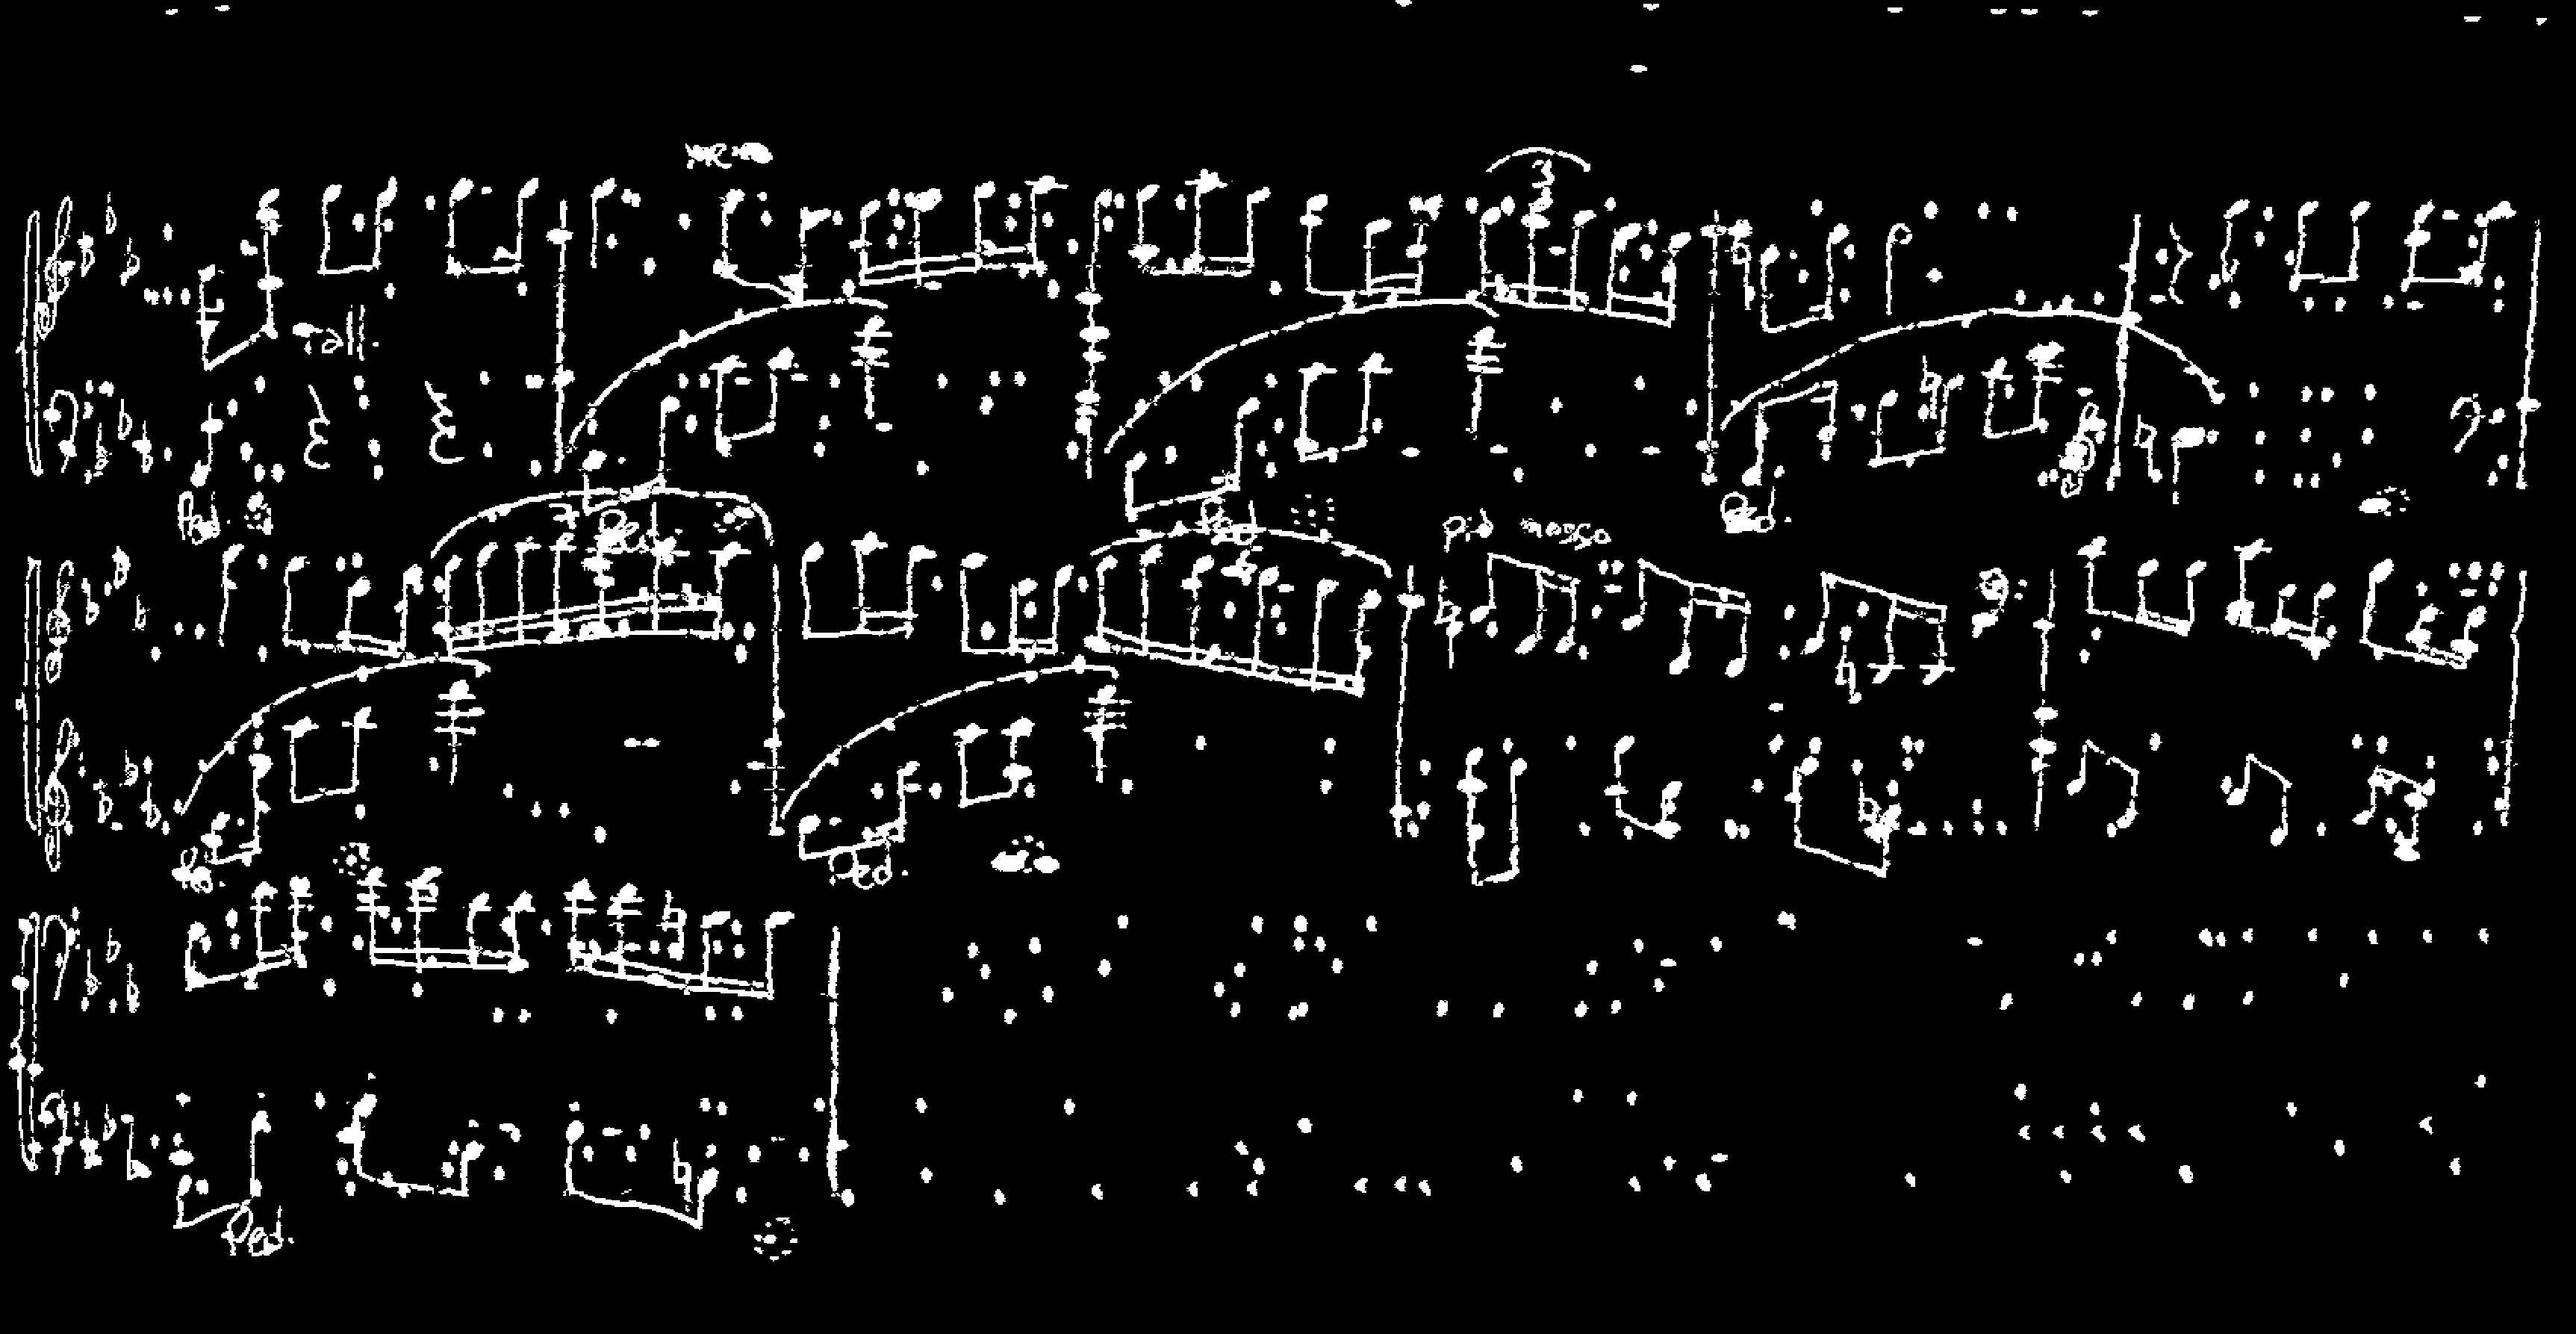 rall.
3
Ped.
7 Ped. Ped. più mosso Ped.
Ped. Ped.
Ped.